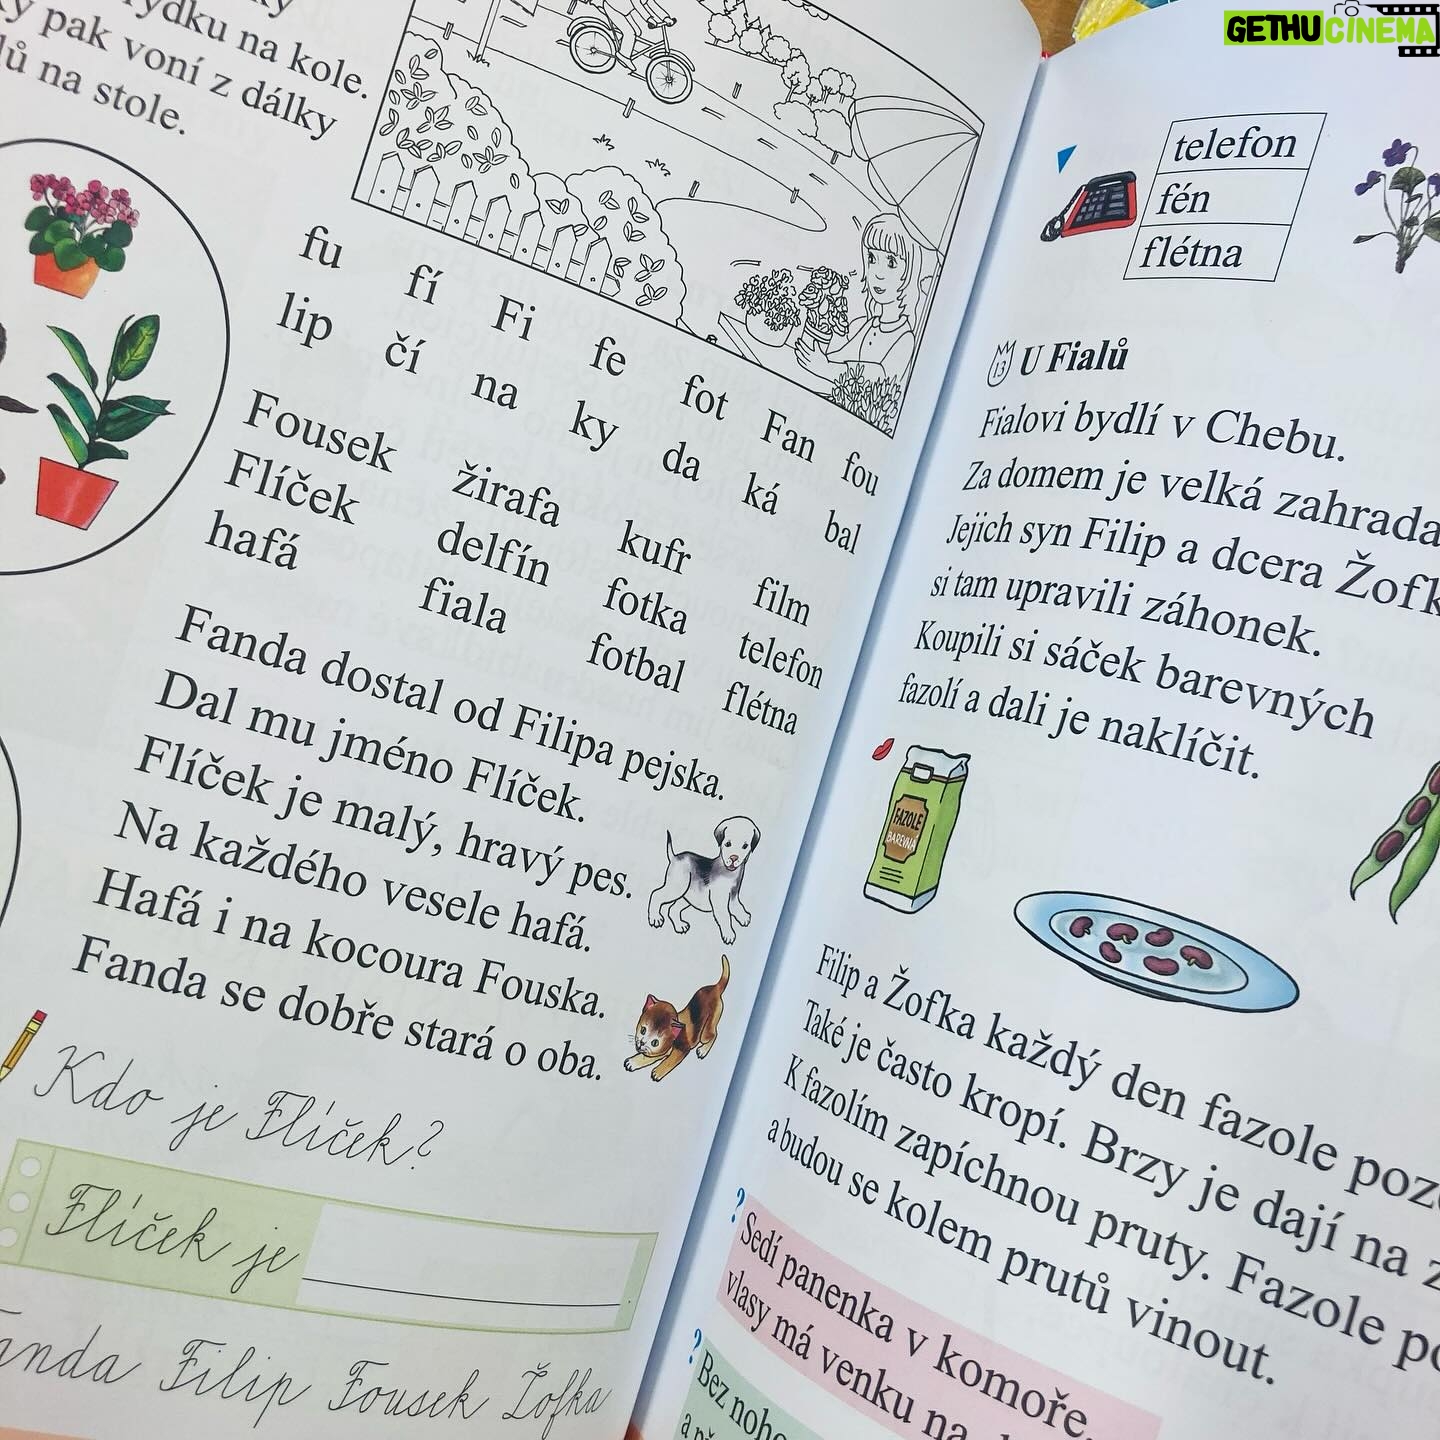 GETHUCINEMA
rydku na kole.
pak voní z dálky
na stole.
fu fí Fi fe fot Fan fou
lip čí na ky da ká bal
Fousek žirafa kufr film
Flíček delfín fotka telefon
hafá fiala fotbal flétna
Fanda dostal od Filipa pejska.
Dal mu jméno Flíček.
Flíček je malý, hravý pes.
Na každého vesele hafá.
Hafá i na kocoura Fouska.
Fanda se dobře stará o oba.
Kdo je Flíček?
Flíček je
Fanda Filip Fousek Žofka
telefon
fén
flétna
13 U Fialů
Fialovi bydlí v Chebu.
Za domem je velká zahrada
Jejich syn Filip a dcera Žofk
si tam upravili záhonek.
Koupili si sáček barevných
fazolí a dali je naklíčit.
FAZOLE
BAREVNÁ
Filip a Žofka každý den fazole poz
Také je často kropí. Brzy je dají na z
K fazolím zapíchnou pruty. Fazole po
a budou se kolem prutů vinout.
? Sedí panenka v komoře,
vlasy má venku na
? Bez noho